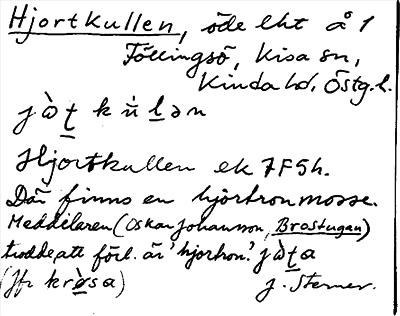 Hjortkullen, öde lht å 1
Föllingsö, Kisa sn,
Kinda hd, Östg.l.
jὼt kù̀lən
Hjortkullen ek 7F5h.
Där finns en hjortronmosse.
Meddelaren (Oskar Johansson, Brostugan)
trodde att förl. är 'hjortron'. jὼta
(Jfr kròsa) J. Sterner.